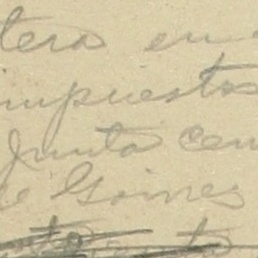 tera en
impuestos
Junta cen
de Gomez